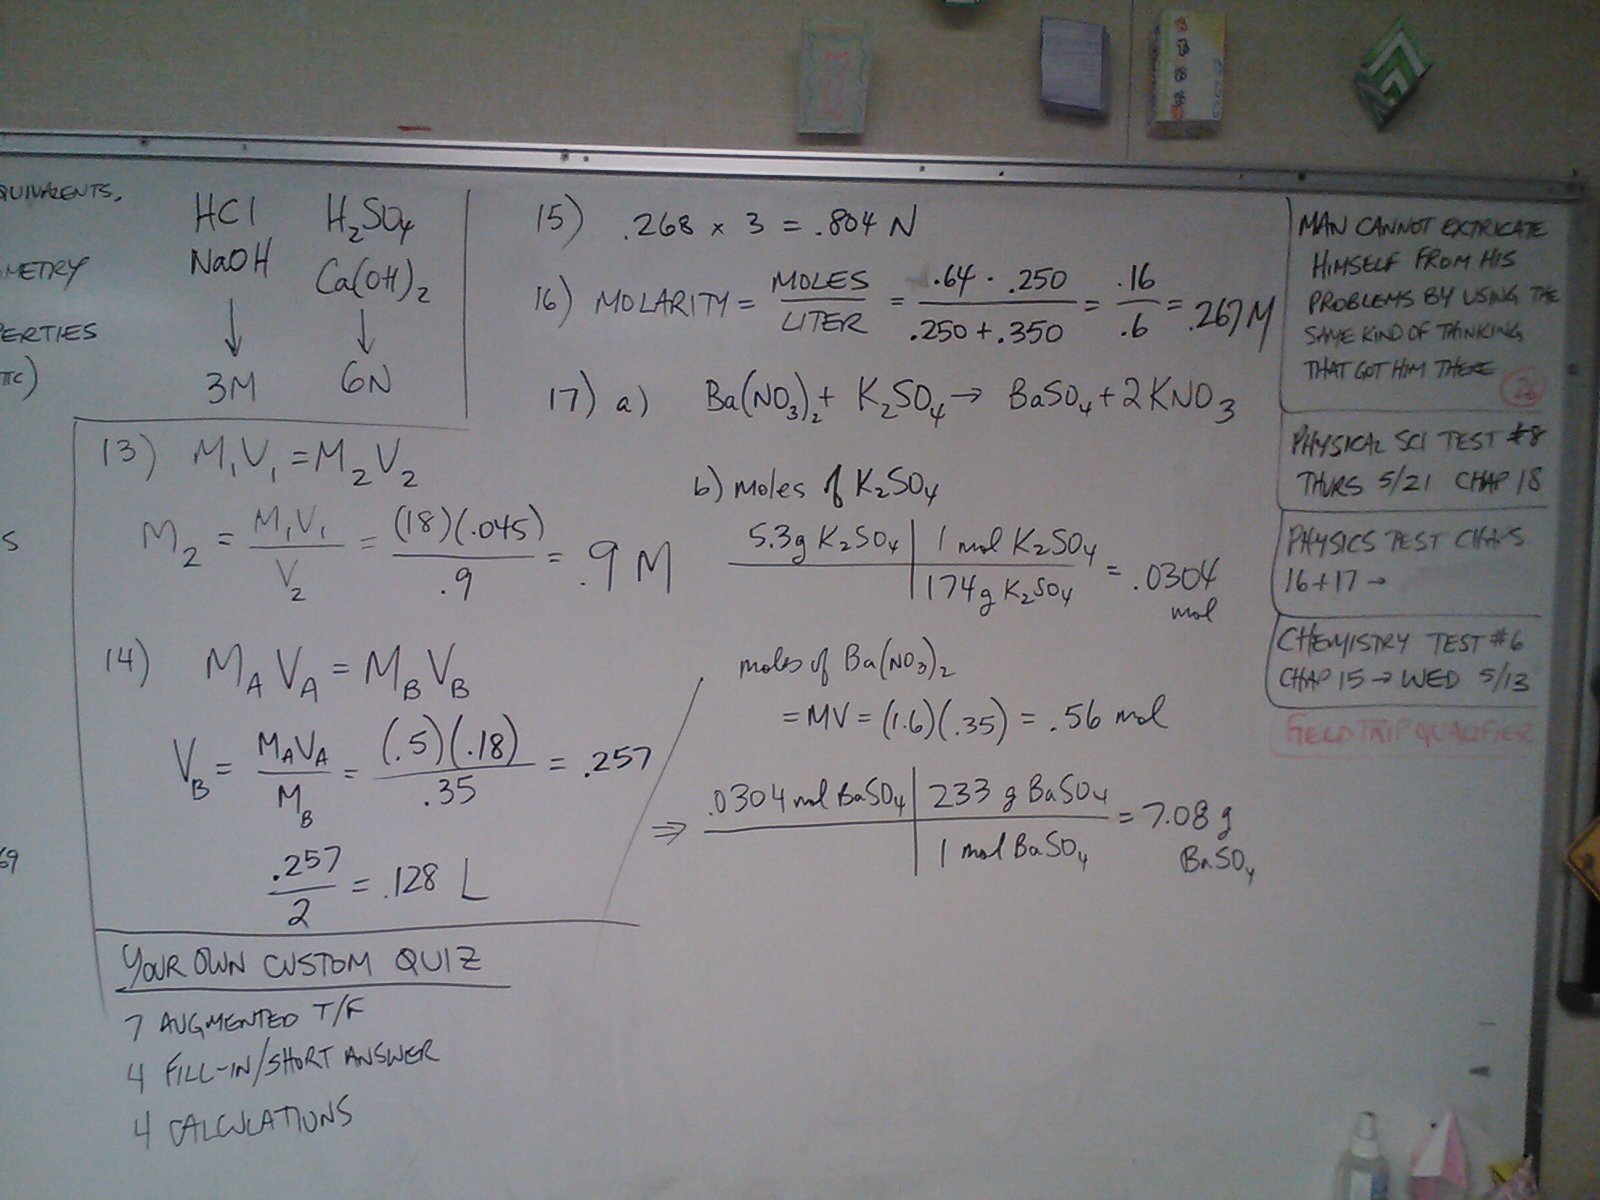 QUIVALENTS,
METRY
PERTIES
TIC)
S
69
HCl H₂SO₄
NaOH Ca(OH)₂
↓ ↓
3M 6N
13) M₁V₁ = M₂V₂
M₂ = M₁V₁/V₂ = (18)(.045)/.9 = .9 M
14) M_A V_A = M_B V_B
V_B = M_A V_A/M_B = (.5)(.18)/.35 = .257
.257/2 = .128 L
YOUR OWN CUSTOM QUIZ
7 AUGMENTED T/F
4 FILL-IN/SHORT ANSWER
4 CALCULATIONS
15) .268 × 3 = .804 N
16) MOLARITY = MOLES/LITER = .64 · .250/.250 + .350 = .16/.6 = .267 M
17) a) Ba(NO₃)₂ + K₂SO₄ → BaSO₄ + 2 KNO₃
b) moles of K₂SO₄
5.3g K₂SO₄ | 1 mol K₂SO₄
174g K₂SO₄ = .0304
mol
moles of Ba(NO₃)₂
= MV = (1.6)(.35) = .56 mol
⇒ .0304 mol BaSO₄ | 233 g BaSO₄
1 mol BaSO₄ = 7.08 g
BaSO₄
MAN CANNOT EXTRICATE
HIMSELF FROM HIS
PROBLEMS BY USING THE
SAME KIND OF THINKING
THAT GOT HIM THERE 26
PHYSICAL SCI TEST #8
THURS 5/21 CHAP 18
PHYSICS TEST CHAPS
16+17 →
CHEMISTRY TEST #6
CHAP 15 → WED 5/13
FIELD TRIP QUALIFIER